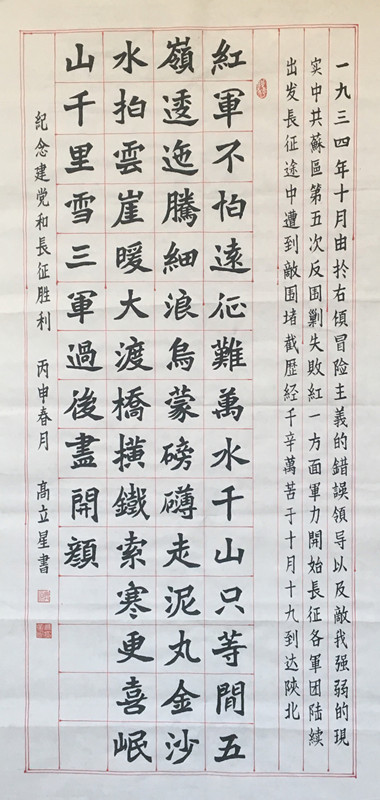 一九三四年十月由於右傾冒险主義的錯誤領导以及敵我强弱的現
实中共蘇區第五次反围剿失敗紅一方面軍力開始長征各軍团陆續
出发長征途中遭到敵围堵截歷经千辛萬苦于十月十九到达陝北
紅軍不怕遠征難萬水千山只等閒五
嶺透迤騰細浪烏蒙磅礴走泥丸金沙
水拍雲崖暖大渡橋横鐵索寒更喜岷
山千里雪三軍過後盡開顔
紀念建党和長征胜利 丙申春月 高立星書